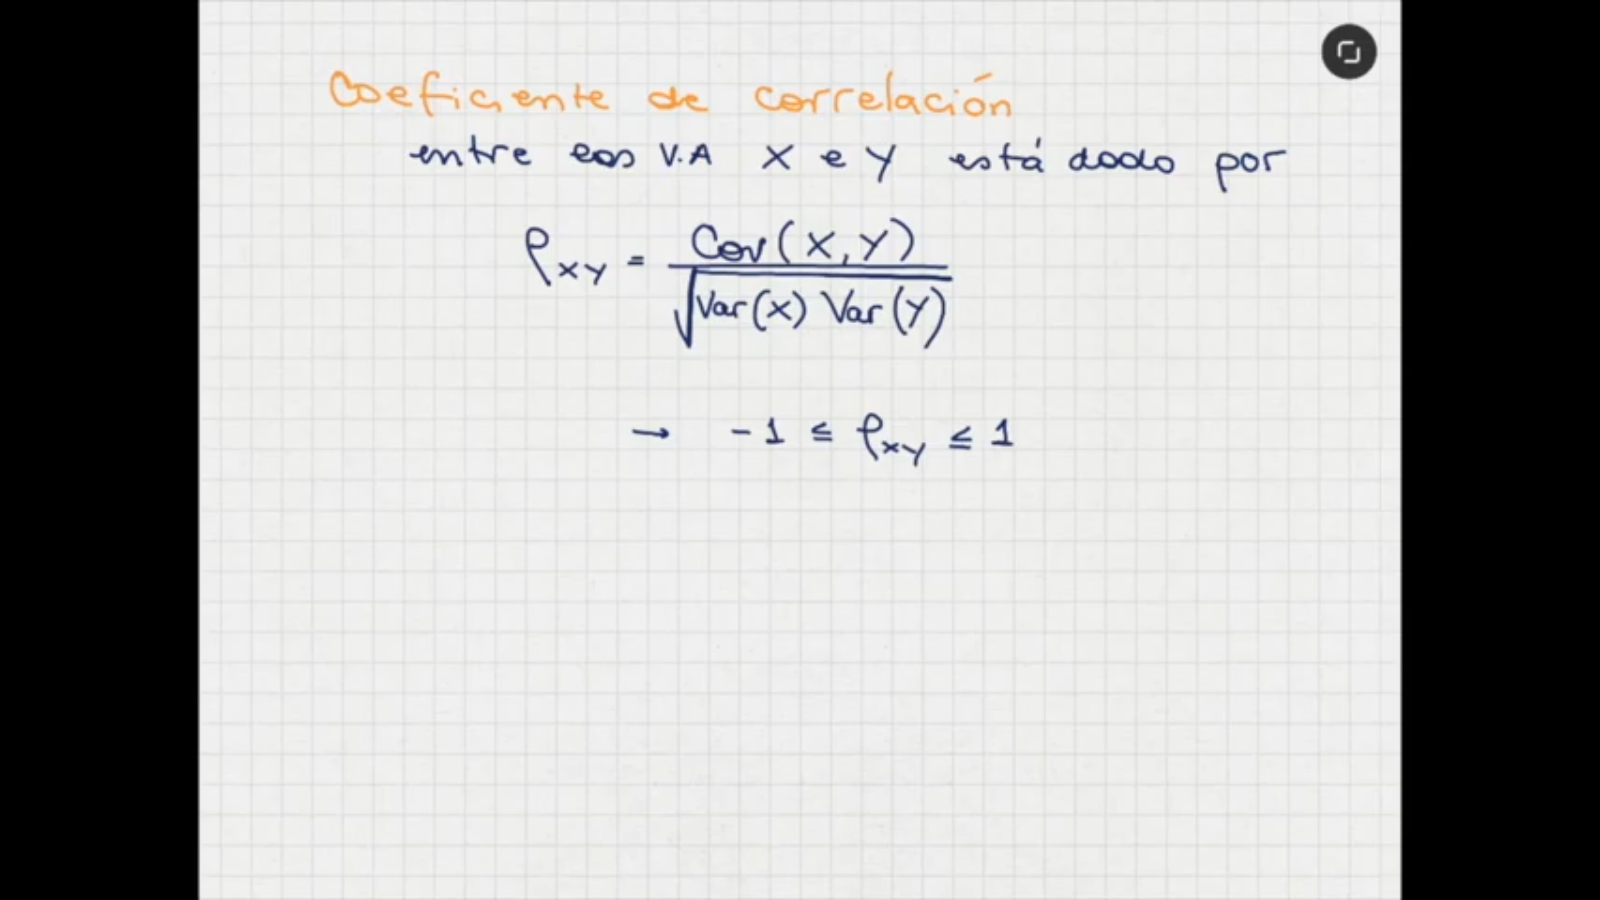 Coeficiente de correlación
entre las V.A X e Y está dado por
ρ_XY = Cov(X,Y) / √(Var(X) Var(Y))
→ -1 ≤ ρ_XY ≤ 1